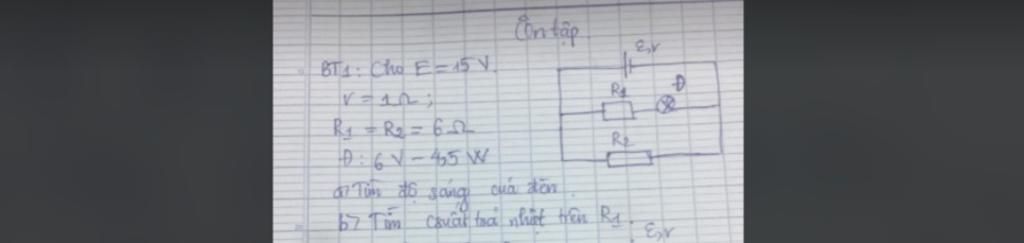 Ôn tập
BT1: Cho E = 15 V.
r = 1Ω;
R1 = R2 = 6Ω
Đ: 6V - 4,5W
a) Tìm độ sáng của đèn.
b) Tìm csuất toả nhiệt trên R1.
ε,r
Đ
R1
R2
ε,r